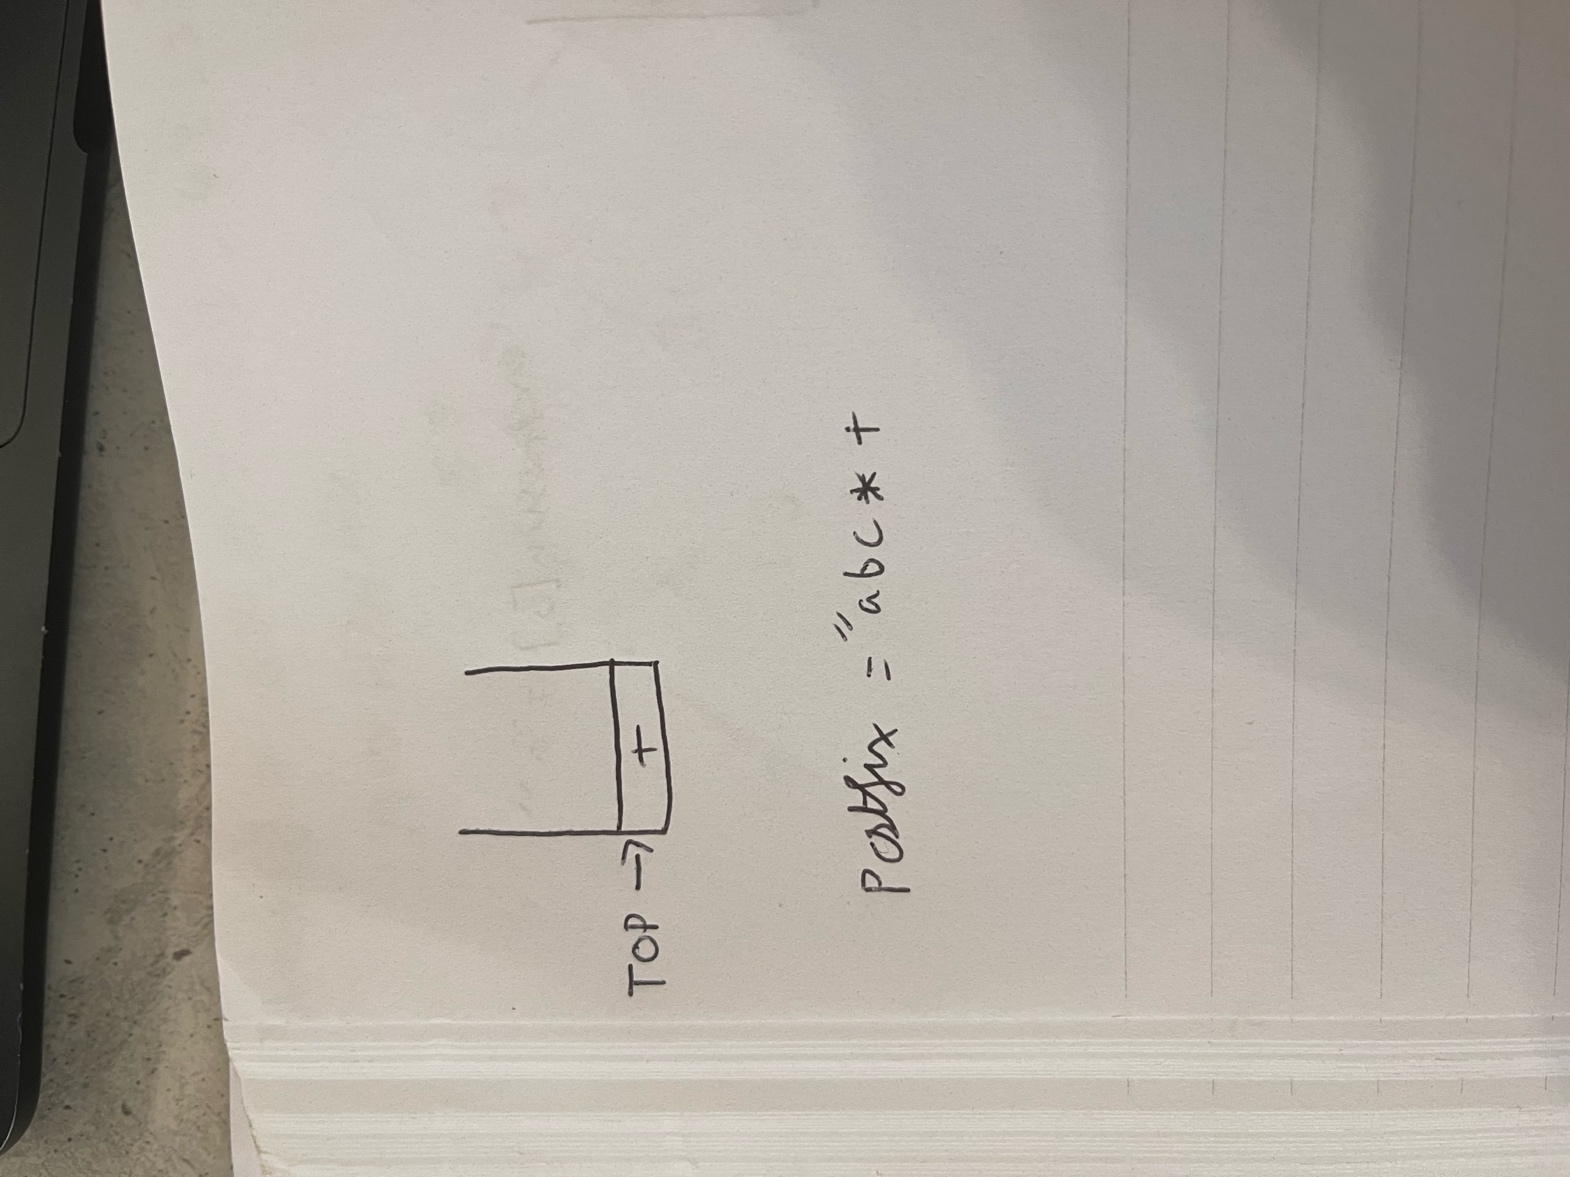 +
TOP →
Postfix = "abc*+